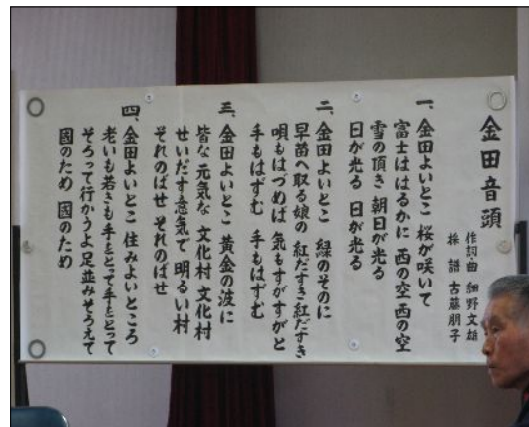 金田音頭
作詞曲 細野文雄
採譜 古藤朋子
一、金田よいとこ 桜が咲いて
富士ははるかに 西の空西の空
雪の頂き 朝日が光る
日が光る 日が光る
二、金田よいとこ 緑のそのに
早苗へ取る娘の 紅だすき紅だすき
唄もはづめば 気もすがすがと
手もはずむ 手もはずむ
三、金田よいとこ 黄金の波に
皆な元気な 文化村文化村
せいだす意気で 明るい村
それのばせ それのばせ
四、金田よいとこ 住みよいところ
老いも若きも手をとって手をとって
そろって行かうよ足並みそろえて
國のため 國のため